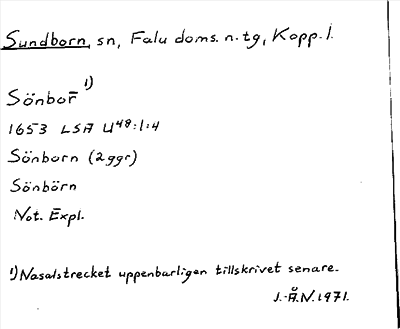 Sundborn, sn, Falu doms. n. tg, Kopp. l.
Sönbor̄ ¹)
1653 LSA U48:1:4
Sönborn (2 ggr)
Sönbörn
Not. Expl.
¹) Nasalstrecket uppenbarligen tillskrivet senare.
J.-Å.N. 1971.